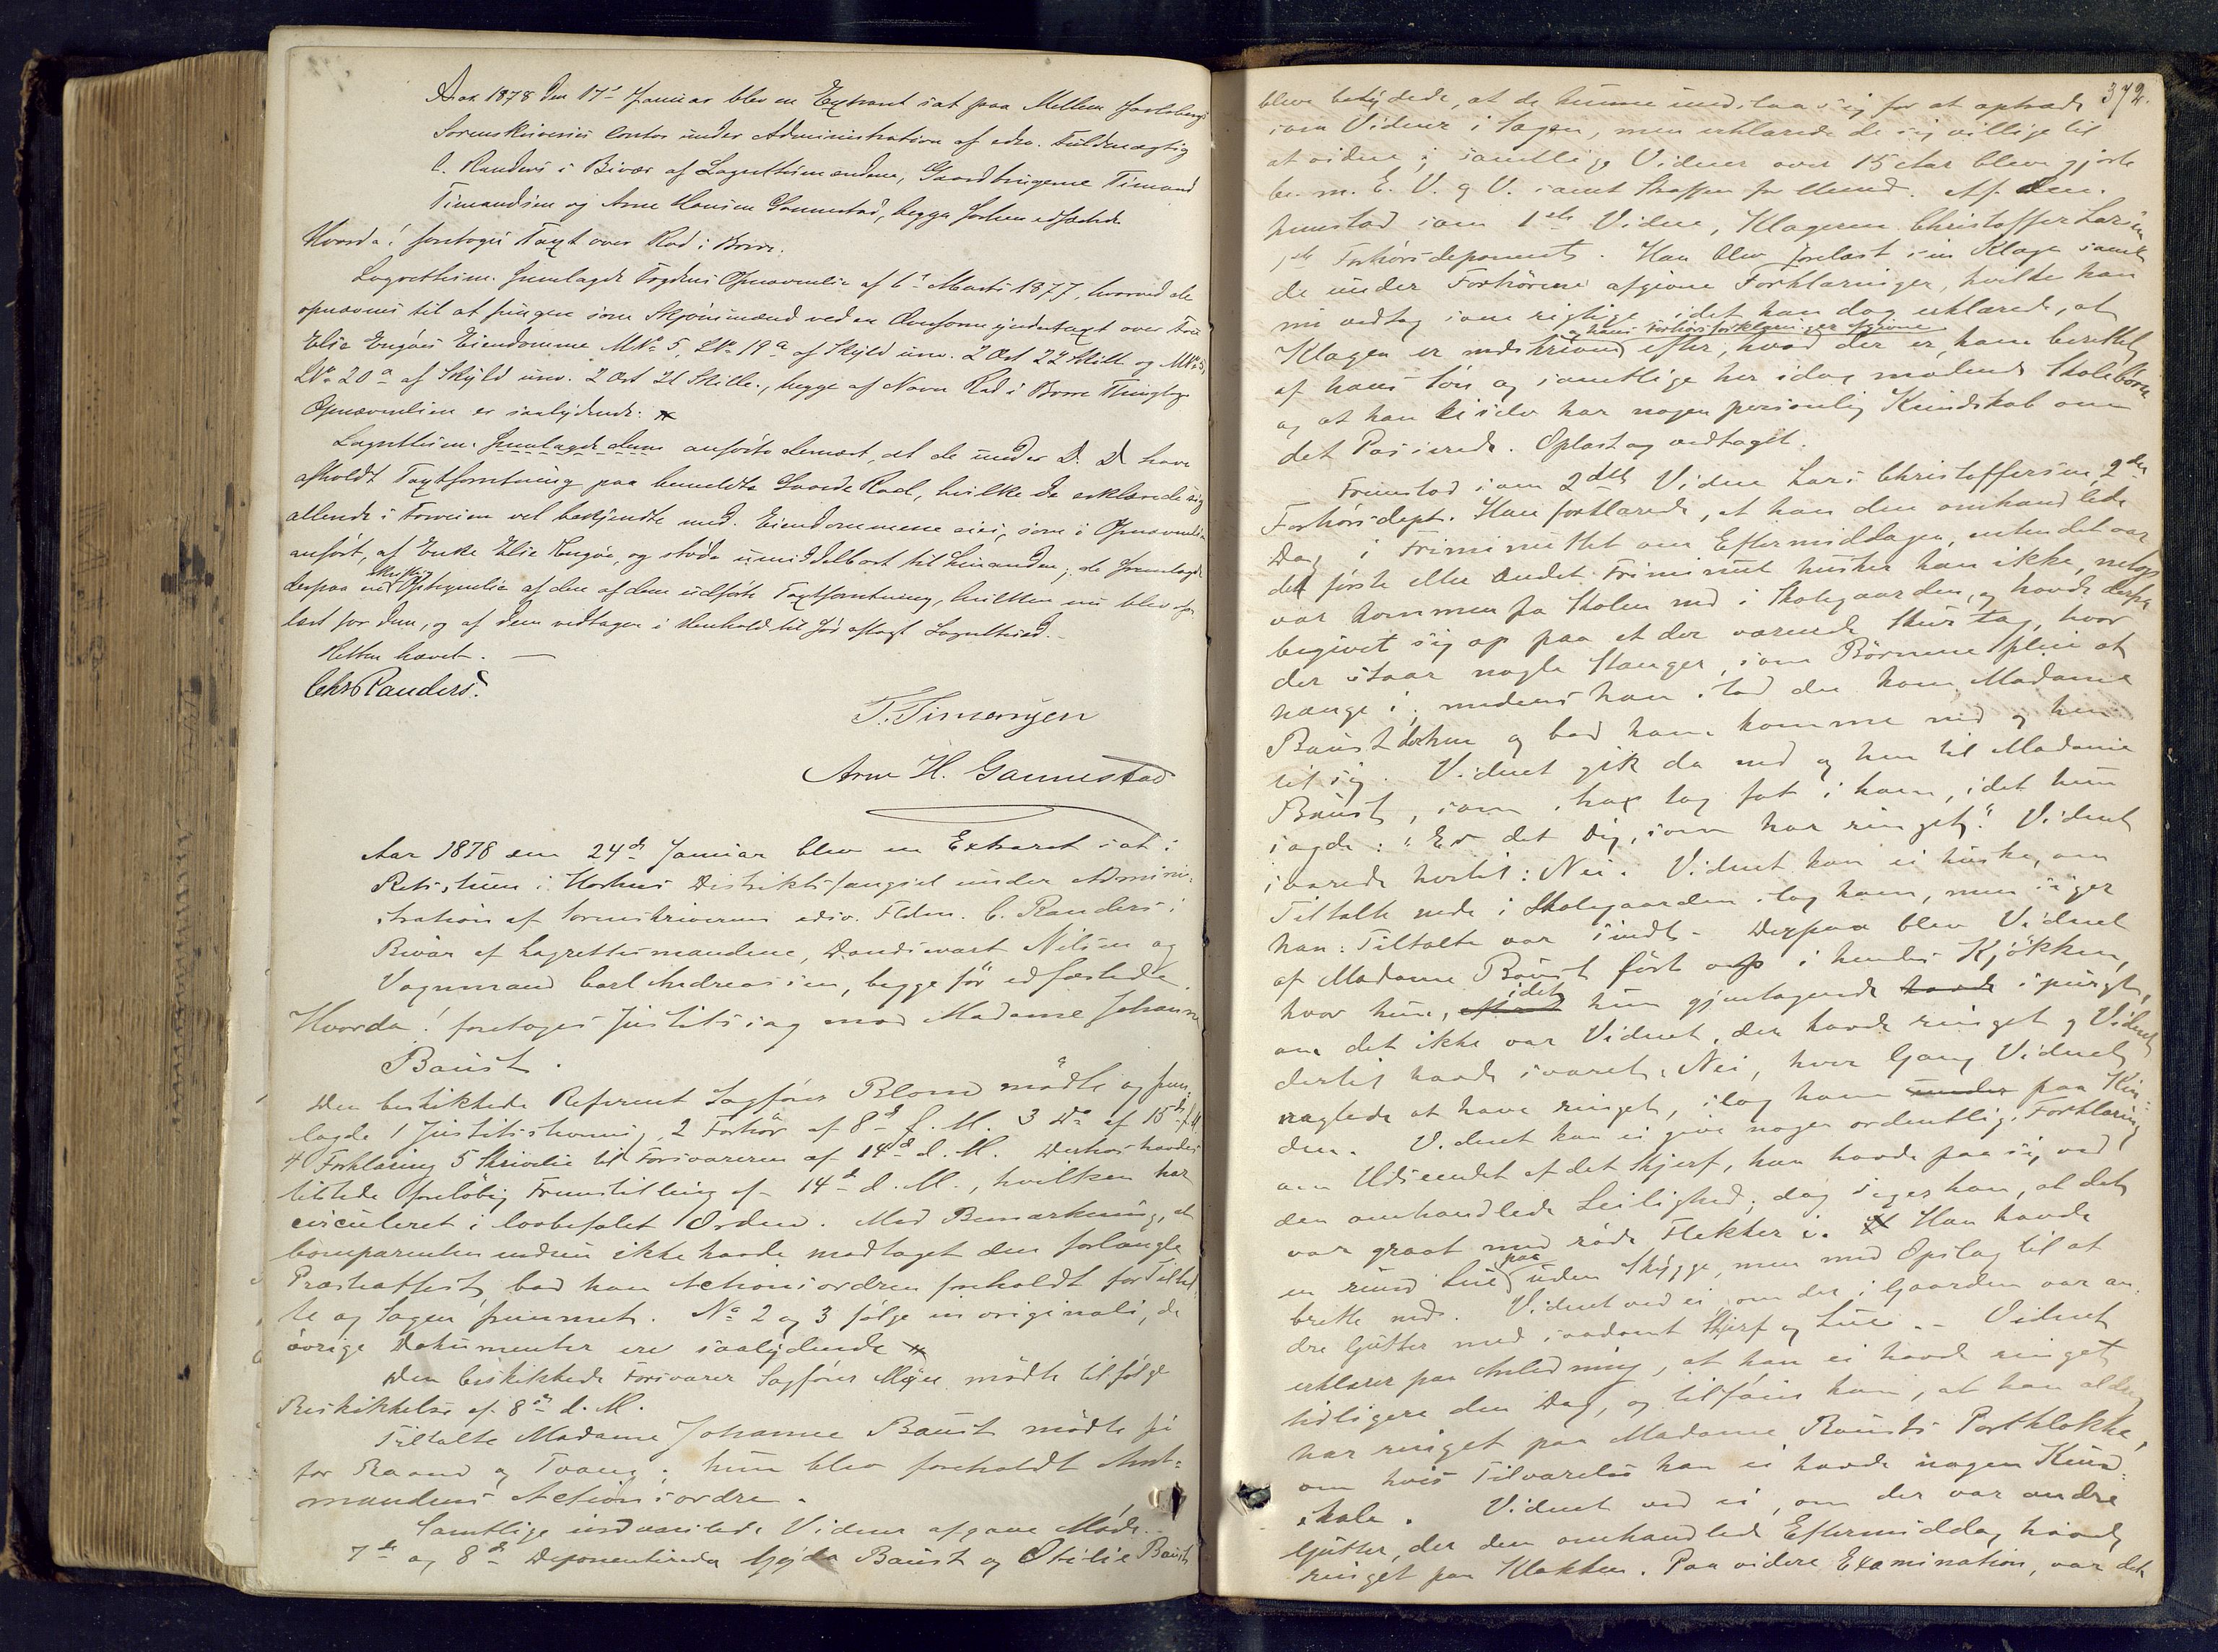 Aar 1878 den 17de Januar blev en Extraret sat paa Mellem Jarlsbergs
Sorenskriveries Contor under Administration af edsv. Fuldmægtig
C. Randers i Bivær af Lagrettesmændene, Gaardbrugerne Timand
Timandsen og Arne Hansen Gannestad, begge forhen edfæstede
Hvorda! foretoges Taxt over Rød i Borre.
Lagrettesm. fremlagde Fogdens Opnævnelse af 6te Marts 1877, hvorved de
opnævnes til at fungere som Skjønsmænd ved en Ovnformyndertaxt over Fru
Elise Engøes Eiendomme MNo 5, LNo 19a af Skyld urev. 2 Ort 22 Skill og MNo 5,
LNo 20a af Skyld urev. 2 Ort 21 Skill., begge af Navn Rød i Borre Thinglag
Opnævnelsen er saalydende:
Lagrettesm. fremlagde dem anførte dernæst, at de under D. D. have
afholdt Taxtforretning paa bemeldte Gaarde Rød, hvilke de erklærede sig
allerede i Forveien vel bekjendte med. Eiendommene eies, som i Opnævnelsen
anført, af Enke Elise Engøe, og støde umiddelbart til hinanden; de fremlagde
derpaa en skriftlig Optegnelse af den af dem udførte Taxtforretning, hvilken nu blev op-
læst for dem, og af dem vedtagen i Henhold til før aflagt Lagrettesed.
Retten hævet.
Chr Randers.
T. Timansen
Arne H. Gannestad
Aar 1878 den 24de Januar blev en Extraret sat i
Retsstuen i Hortens Distriktsfængsel under Admini-
stration af Sorenskriverens edsv. Fldm. C. Randers i
Bivær af Lagrettesmændene, Vandsvart Nilsen og
Vognmand Carl Andreassen, begge før edfæstede.
Hvorda! foretoges Justitssag mod Madame Johanne
Baust.
Den beskikkede Referent Sagfører Blom mødte og frem-
lagde 1 Justitsstevning, 2 Forhør af 8de f. M. 3 Do af 15de f. M
4 Forklaring 5 Skrivelse til Forsvareren af 14de d. M. Derhos havdes
tilstede foreløbig Fremstilling af 14de d. M., hvilken har
circuleret i lovbefalet Orden. Med Bemærkning, at
Comparenten endnu ikke havde modtaget den forlangte
Præsteattest, bad han Actionsordren foreholdt for Tiltal-
te og Sagen fremmet. No 2 og 3 følge in originali, de
øvrige Dokumenter ere saalydende
Den beskikkede Forsvarer Sagfører Mejer mødte tilfølge
Beskikkelse af 8de d. M.
Tiltalte Madame Johanne Baust mødte fri
for Baand og Tvang. Hun blev foreholdt Amt-
mandens Actionsordre.
Samtlige indvarslede Vidner afgave Møde.
7de og 8de Deponentinde Gyda Baust og Otilie Baust
372.
bleve betydede, at de kunne undslaa sig for at optræde
som Vidner i Sagen, men erklærede de sig villige til
at vidne; samtlige Vidner over 15 Aar bleve gjorte
be. m. E. V. og V. samt Straffen for Meened. Af dem
fremstod som 1ste Vidne, Klageren Christoffer Larsen
1ste Forhørsdeponent. Han blev forelæst sin Klage samt
de under Forhørene afgivne Forklaringer, hvilke han
nu vedtog som rigtige idet han dog erklærede, at
og hans Forhørsforklaringer afgivne
Klagen er nedskreven efter, hvad der er ham berettet
af hans Søn og samtlige her idag mødende Skolebørn
og at han ei selv har nogen personlig Kundskab om
det Passerede. Oplæst og vedtaget.
Fremstod som 2det Vidne Lars Christoffersen, 2den
Forhørsdept. Han forklarede, at han den omhandlede
Dag i Friminuttet om Eftermiddagen, enten det var
det første eller andet Friminut husker han ikke, netop
var kommen fra Skolen ned i Skolegaarden, og havde derpaa
begivet sig op paa et der værende Skurtag, hvor
der staar nogle Stænger, som Børnene pleie at
hænge i; medens han stod der kom Madame
Baust derhen og bad ham komme ned og hen
til sig. Vidnet gik da ned og hen til Madame
Baust, som strax tog fat i ham, idet hun
sagde: "Er det Dig, som har ringet?" Vidnet
svarede hertil: Nei. Vidnet kan ei huske, om
Tiltalte nede i Skolegaarden slog ham, men siger
han: Tiltalte var sindt. Derpaa blev Vidnet
af Madame Baust ført op i hendes Kjøkken,
hvor hun, idet hun gjentagende havde spurgt,
om det ikke var Vidnet, der havde ringet og Vidnet
dertil havde svaret: Nei, hver Gang Vidnet
nægtede at have ringet, slog ham under paa Kin-
den. Vidnet kan ei give nogen ordentlig Forklaring
om Udseendet af det Skjerf, han havde paa sig ved
den omhandlede Leilighed; dog siger han, at det
var graat med røde Flekker i. Han havde
en rund Lue paa uden Skygge, men med Opslag til at
brette ned. Vidnet ved ei, om der i Gaarden var an-
dre Gutter med saadant Skjerf og Lue. Vidnet
erklærer paa Anledning, at han ei havde ringet
tidligere den Dag, og tilføier han, at han aldrig
har ringet paa Madame Bausts Portklokke,
om hvis Tilværelse han ei havde nogen Kund-
skab. Vidnet ved ei, om der var andre
Gutter, der den omhandlede Eftermiddag havde
ringet paa Klokken. Paa videre Examination, var det